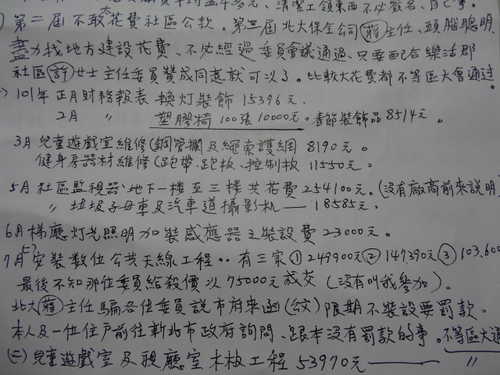 領東西不必
第二屆不敢花費社區公款。第三屆北大保全公司蔣主任、頭腦聰明
盡力找地方建設花費、不必經過委員會議通過、只要配合樂活郡
社區許女士主任委員贊成同意就可以了。比較大花費都不等區大會通過
101年正月財務報表 換灯裝飾 15396元.
2月 〃 塑膠椅100張10000元。春節裝飾品8514元。
3月 兒童遊戲室維修(鋼管欄及繩索護網 8190元。
健身房器材維修(跑帶.跑板.控制板 11550元。
5月社區監視器、地下一樓至三樓共花費254100元。(沒有廠商前來說明
〃 垃圾子母車及汽車道攝影机——18585元.
6月梯廳灯光照明加裝感應器之裝設費23000元。
7月安裝數位公共天線工程‥有三家①249900元②147390元③103.600
最後不知那位委員給殺價以75000元成交(沒有叫我參加)。
北大蔣主任騙各位委員說市府來函(公文)限期不裝設要罰款。
本人及一位住戶前往新北市政府詢問、跟本沒有罰款的事。不等區大通
(二)兒童遊戲室及視廳室木板工程 53970元—— 〃